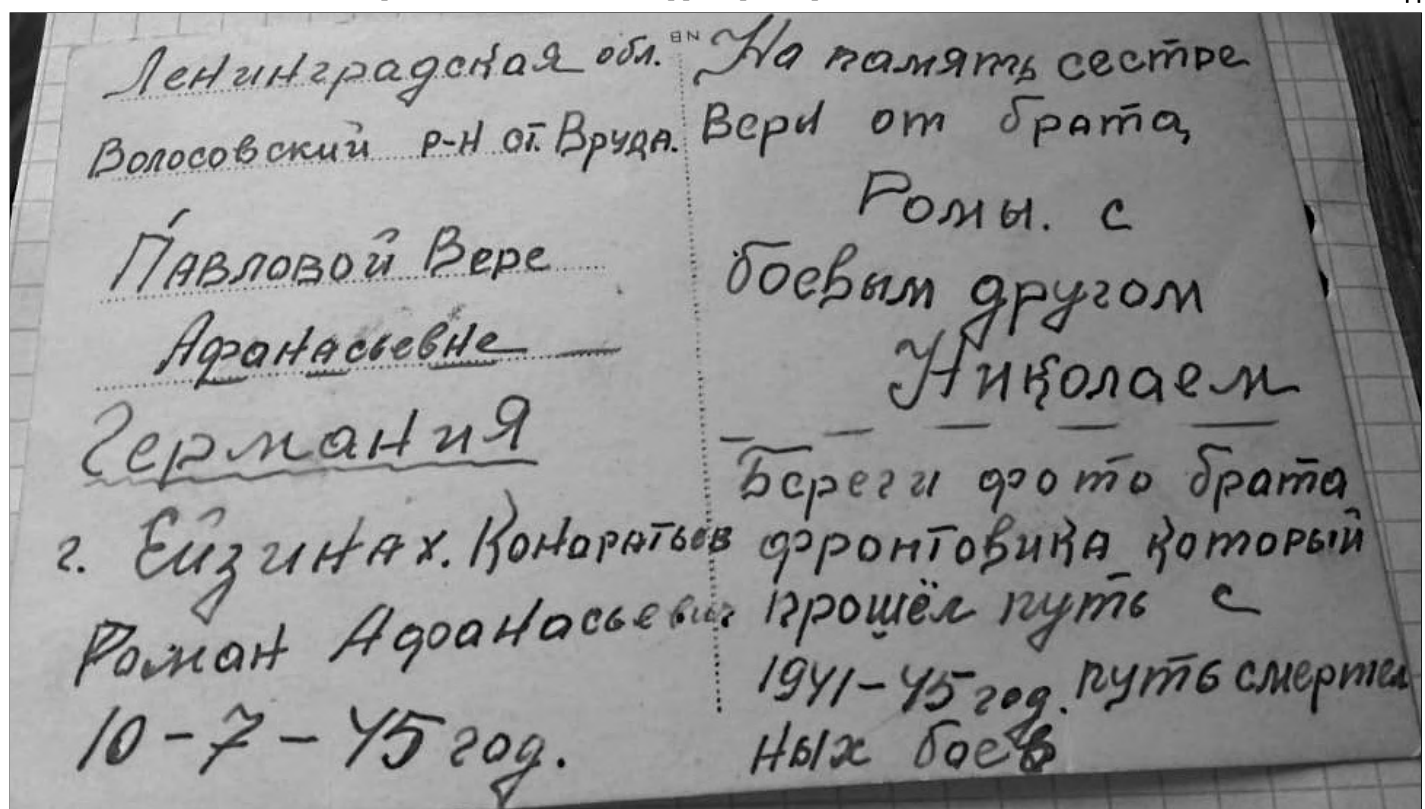 Ленинградская обл.
Волосовский р-н ст. Вруда.
Павловой Вере
Афанасьевне
Германия
г. Ейзинах. Кондратьев
Роман Афанасьевич
10-7-45 год.
На память сестре
Веры от брата,
Ромы. с
боевым другом
Николаем
Береги фото брата
фронтовика который
прошёл путь с
1941-45 год. путь смертел
ных боев